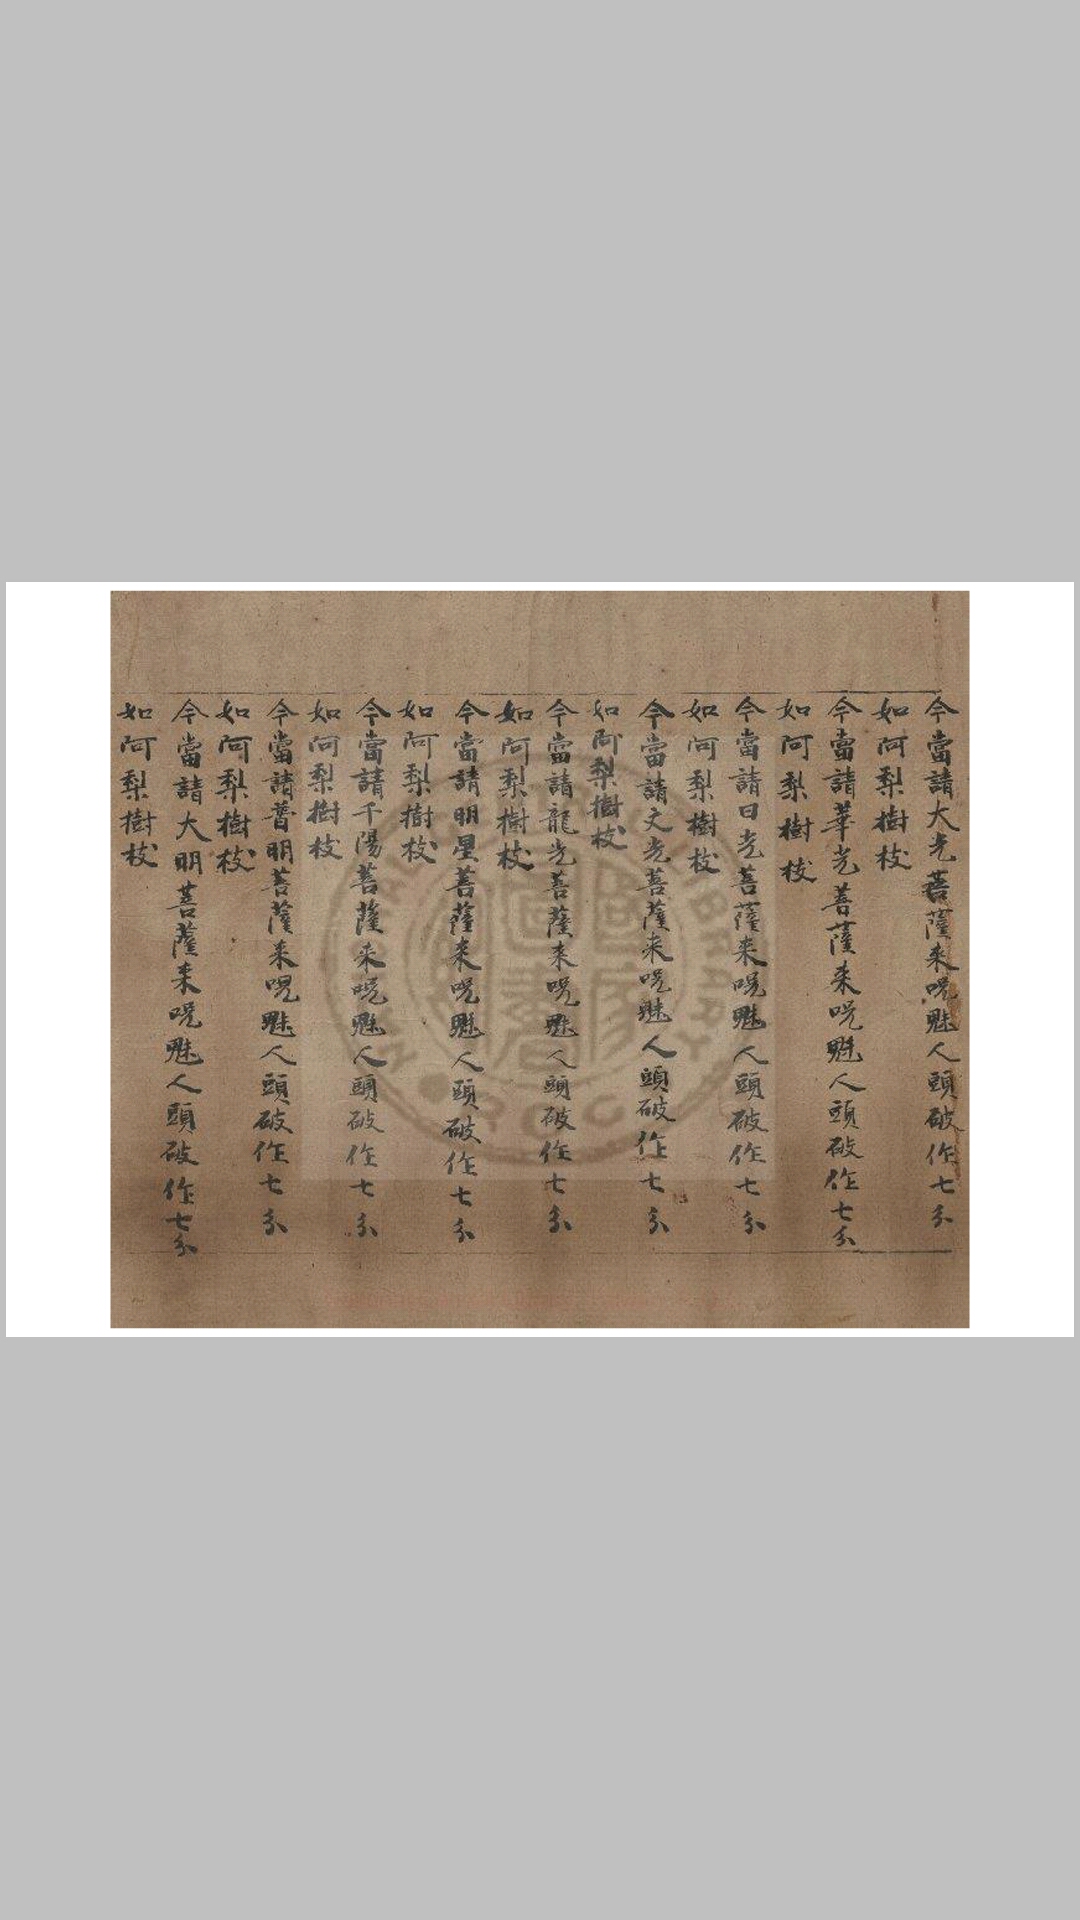 今當請大光菩薩来呪魅人頭破作七分
如阿梨樹枝
今當請華光菩薩来呪魅人頭破作七分
如阿梨樹枝
今當請日光菩薩来呪魅人頭破作七分
如阿梨樹枝
今當請文光菩薩来呪魅人頭破作七分
如阿梨樹枝
今當請龍光菩薩来呪魅人頭破作七分
如阿梨樹枝
今當請明星菩薩来呪魅人頭破作七分
如阿梨樹枝
今當請千陽菩薩来呪魅人頭破作七分
如阿梨樹枝
今當請普明菩薩来呪魅人頭破作七分
如阿梨樹枝
今當請大明菩薩来呪魅人頭破作七分
如阿梨樹枝